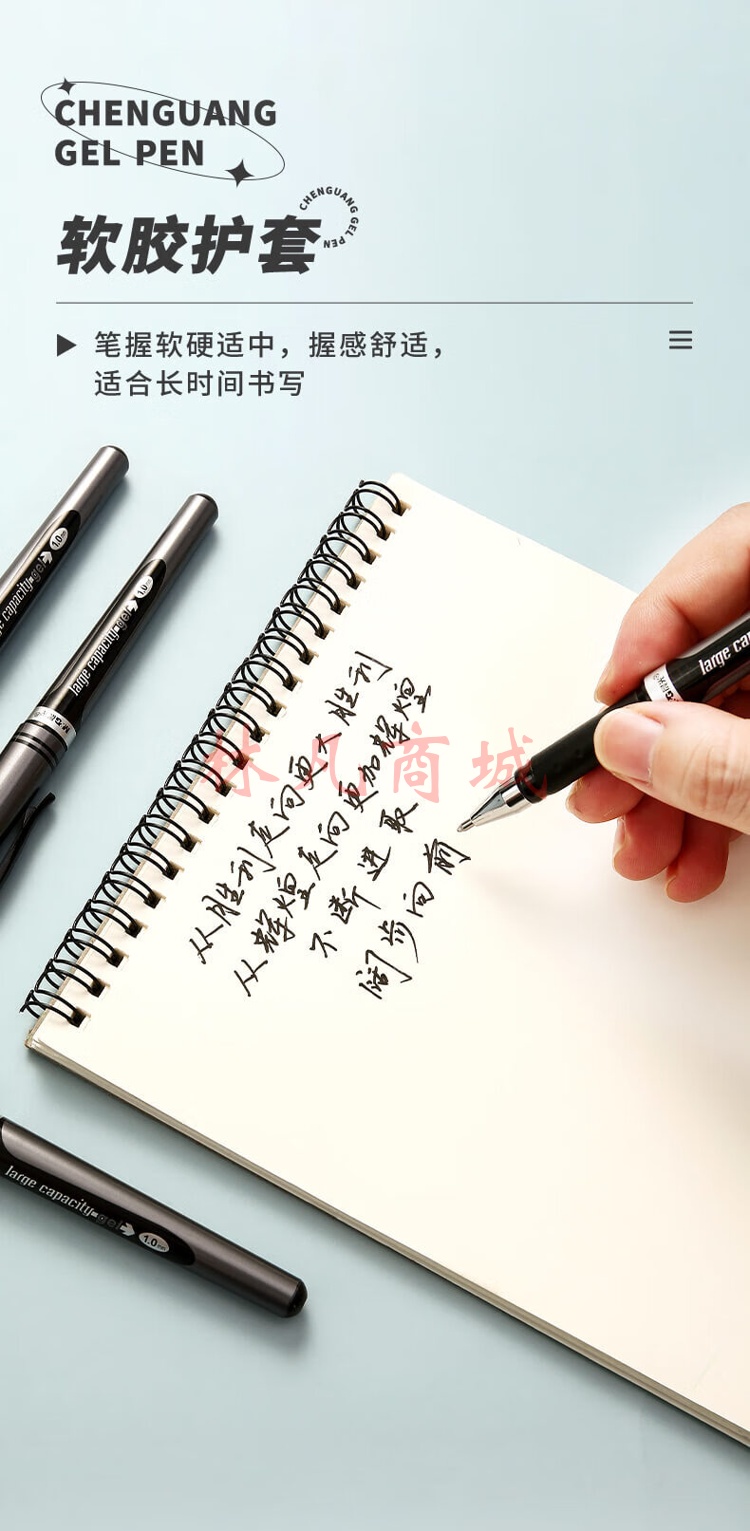 CHENGUANG
GEL PEN
CHENGUANG GEL PEN
软胶护套
笔握软硬适中，握感舒适，
适合长时间书写
1.0
large capacity-gel
1.0
large capacity-gel
M&G
large ca
从胜利走向更大胜利
从辉煌走向更加辉煌
不断进取
阔步向前
林凡商城
large capacity-gel
1.0